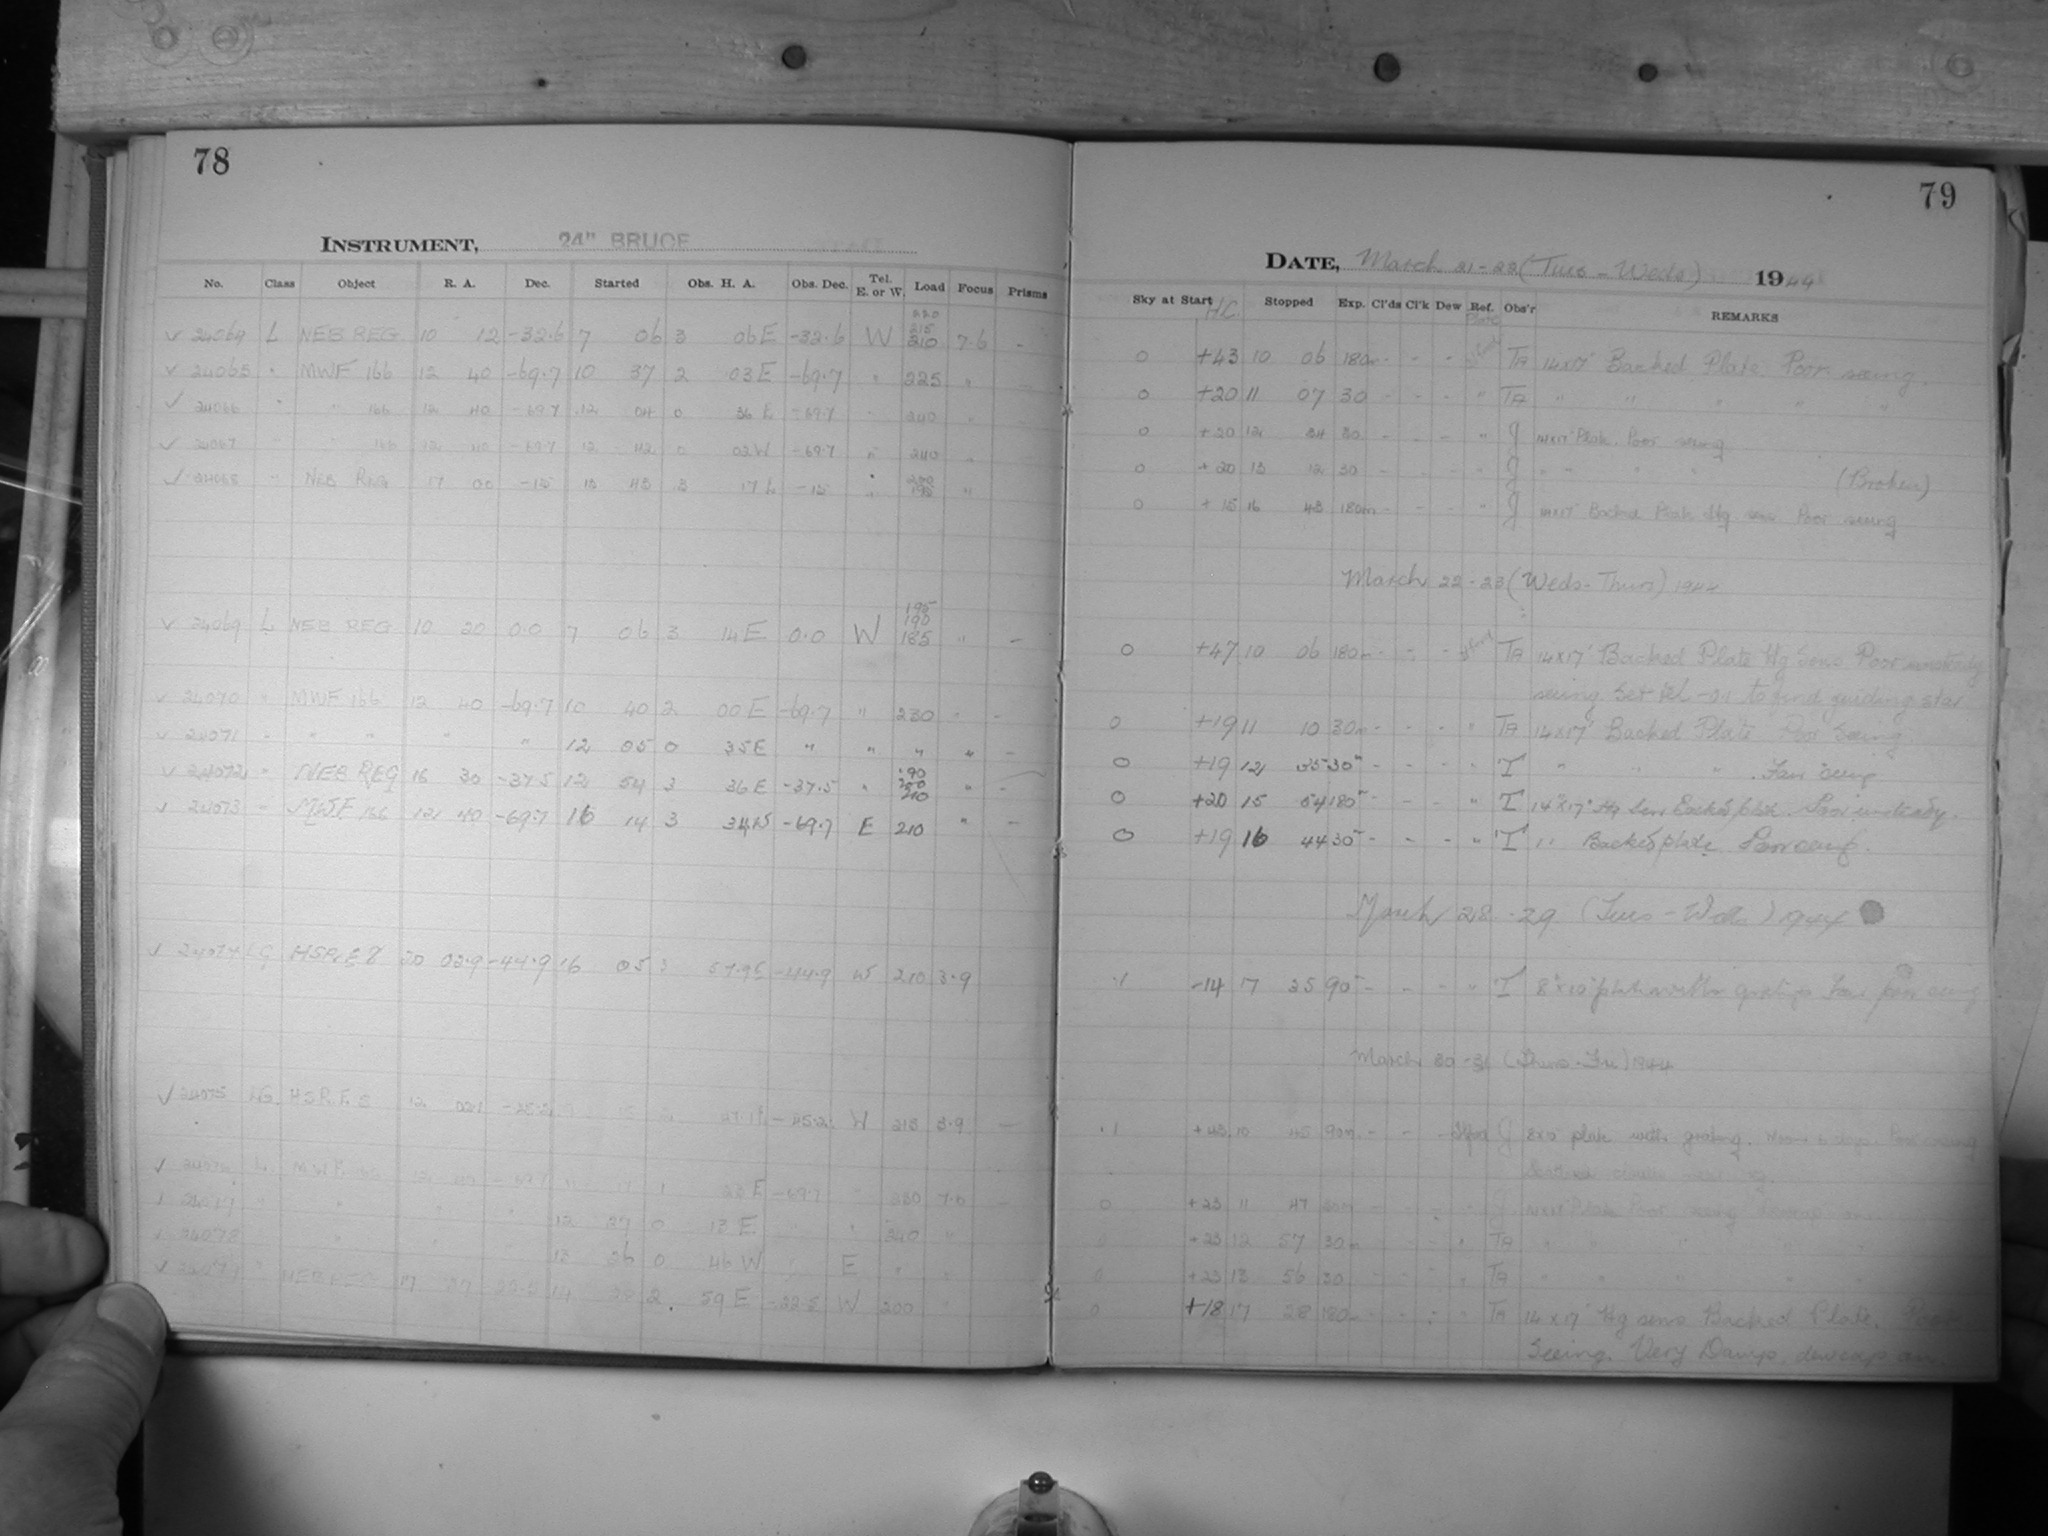 78
INSTRUMENT, 24" BRUCE
No. Class Object R. A. Dec. Started Obs. H. A. Obs. Dec. Tel. E. or W. Load Focus Prisms
v 24064 L NEB REG 10 12 -32.6 7 06 3 06 E -32.6 W 220 215 210 7.6 -
v 24065 " MWF 166 12 40 -69.7 10 37 2 03 E -69.7 " 225 "
v 24066 " " 166 12 40 -69.7 12 04 0 36 E -69.7 " 240 "
v 24067 " " 166 12 40 -69.7 12 42 0 02 W -69.7 " 240 "
v 24068 " NEB REG 17 00 -15 13 43 3 17 E -15 " 200 195 "
v 24069 L NEB REG 10 20 0.0 7 06 3 14 E 0.0 W 195 190 185 " -
v 24070 " MWF 166 12 40 -69.7 10 40 2 00 E -69.7 " 230 " -
v 24071 " " " " " 12 05 0 35 E " " " " -
v 24072 " NEB REG 16 30 -37.5 12 54 3 36 E -37.5 " 190 200 210 " -
v 24073 " MWF 166 12 40 -69.7 16 14 3 34 W -69.7 E 210 " -
v 24074 LG HSPRE 8 20 03.9 -44.9 16 05 3 57.9E -44.9 W 210 3.9
v 24075 LG. HSP.E. 8 12 -45.2 W 215 3.9 -
v L MWF 12 40 -69.7 11 17 1 23 E -69.7 " 230 7.6 -
24077 " " " " 12 27 0 13 E " " 240 "
v 24078 " " 13 26 0 46 W " E " "
v NEB REG 17 27 -22.5 14 28 2 59 E -22.5 W 200
79
DATE, March 21-22 (Tues - Weds) 1944
Sky at Start H.C. Stopped Exp. Cl'ds Cl'k Dew Ref. Plate Obs'r REMARKS
0 +43 10 06 180m - - - TA 14x17" Backed Plate Poor seeing.
0 +20 11 07 30 - - - " TA " " " " "
0 +20 12 34 30 - - - " J 14x17" Plate. Poor seeing
0 +20 13 12 30 - - - " J " " " " (Broken)
0 +15 16 43 180m - - - " J 14x17" Backed Plate Hg sens Poor seeing
March 22-23 (Weds-Thurs) 1944
0 +47 10 06 180m - - - TA 14x17" Backed Plate Hg Sens Poor unsteady
seeing Set tel -0.1 to find guiding star
0 +19 11 10 30m - - - " TA 14x17" Backed Plate Poor Seeing
0 +19 12 35 30m - - - " T " " " Fair seeing
0 +20 15 54 180m - - - " T 14"x17" Hg Sens Backed plate. Poor unsteady.
0 +19 16 44 30m - - - " T " Backed plate Poor seeing.
March 28-29 (Tues - Weds) 1944
.1 -14 17 35 90m - - - " T 8"x10" plate with grating Fair seeing
March 30-31 (Thurs-Fri) 1944
.1 +43 10 45 90m - - - J 8x10" plate with grating. Poor seeing
0 +23 11 47 30m - - - " J 14x17" Plate Poor seeing
0 +23 12 57 30m - - - " TA " " " " "
0 +23 13 56 30 - - - " TA " " " " "
0 +18 17 28 180m - - - " TA 14x17" Hg sens Backed Plate. Poor
Seeing. Very Damp. dewcap on